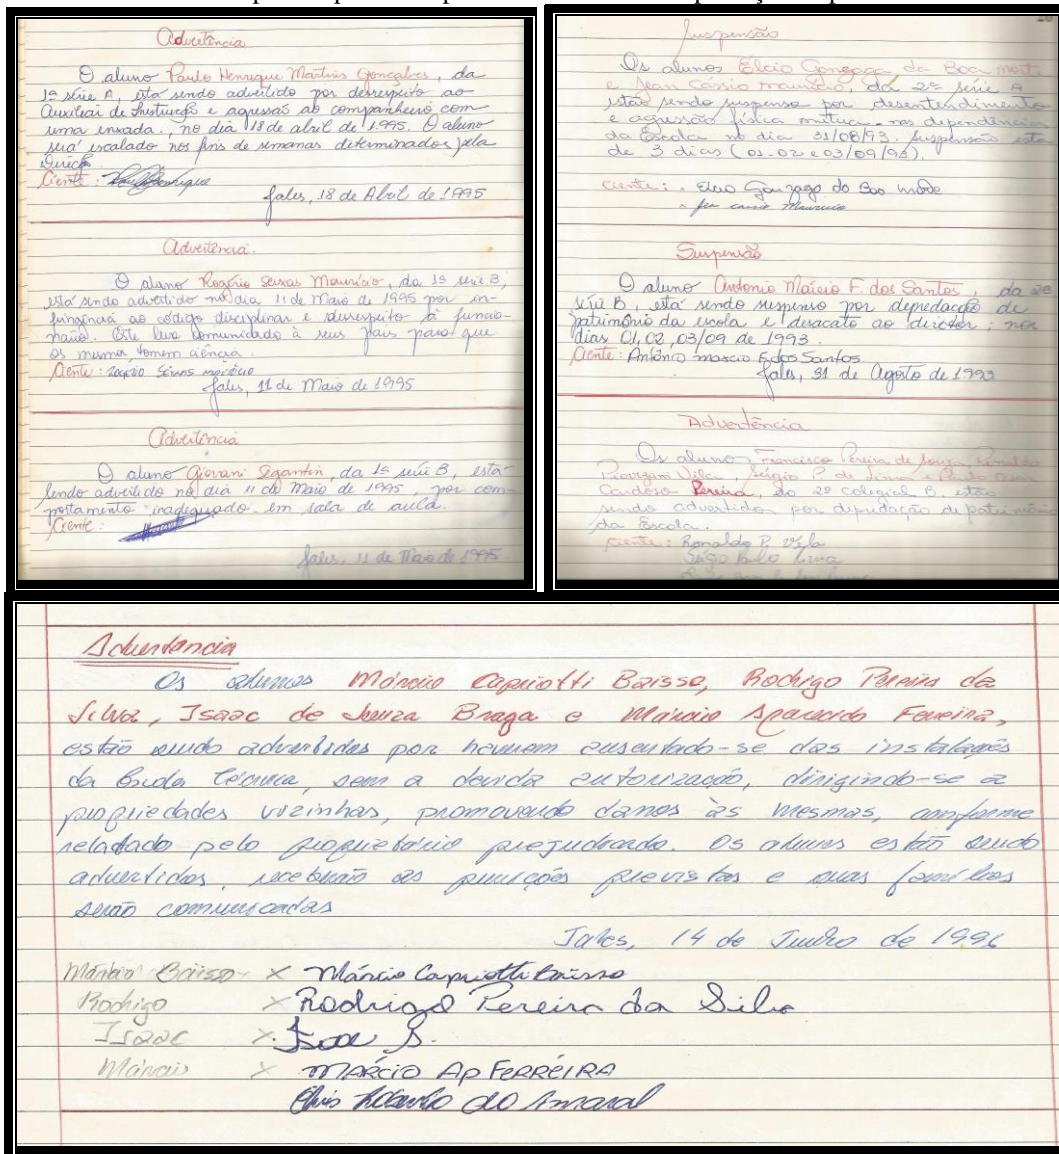 Advertência
O aluno Paulo Henrique Martins Gonçalves, da
1ª série A, está sendo advertido por desrespeito ao
Auxiliar de Instrução e agressão ao companheiro com
uma enxada., no dia 18 de abril de 1.995. O aluno
será escalado nos fins de semanas determinados pela
Direção
Ciente:
Jales, 18 de Abril de 1995
Advertência.
O aluno Rogério Seixas Maurício, da 1ª série B,
está sendo advertido no dia 11 de Maio de 1995 por in-
fringência ao código disciplinar e desrespeito à funcio-
nário. Este leva comunicado à seus pais para que
os mesmos tomem ciência.
Ciente: Rogério Seixas
Jales, 11 de Maio de 1995
Advertência
O aluno Giovani Segantin, da 1ª série B, está
sendo advertido no dia 11 de Maio de 1995, por com-
portamento inadequado em sala de aula.
Ciente:
Jales, 11 de Maio de 1995
Suspensão
Os alunos Elcio Gonzaga da Boa morte
e Jean Cássio maurício, da 2ª série A
estão sendo suspenso por desentendimento
e agressão física mútua nas dependências
da Escola no dia 31/08/93. Suspensão esta
de 3 dias (01.02 e 03/09/93).
ciente: Elcio Gonzaga do Boa morte
Jean cassio Mauricio
Suspensão
O aluno Antonio Márcio F. dos Santos, da 2ª
série B, está sendo suspenso por depedação de
patrimônio da escola e desacato ao diretor; nos
dias 01, 02, 03/09 de 1993.
Ciente: Antônio marcio F. dos Santos
Jales, 31 de Agosto de 1993
Advertência
Os alunos Francisco Pereira de Souza, Ronaldo
Vila, Sérgio P. de Lima e Paulo
Cardoso Pereira, do 2º colegial B. estão
sendo advertidos por depredação de patrimônio
da Escola.
ciente: Ronaldo P. Vila
Sérgio Paulo Lima
Advertancia
Os alunos Márcio Capriotti Baisso, Rodrigo Pereira da
Silva, Isaac de Souza Braga e Márcio Aparecido Ferreira,
estão sendo advertidos por haverem ausentado-se das instalações
da Escola Técnica, sem a devida autorização, dirigindo-se a
propriedades vizinhas, promovendo danos às mesmas, conforme
relatado pelo proprietário prejudicado. Os alunos estão sendo
advertidos, receberão as punições previstas e suas famílias
serão comunicadas
Jales, 14 de Junho de 1996
Márcio Baisso x Márcio Capriotti Baisso
Rodrigo x Rodrigo Pereira da Silva
Isaac x Isaac S.
Márcio x MÁRCIO AP FERREIRA
do Amaral